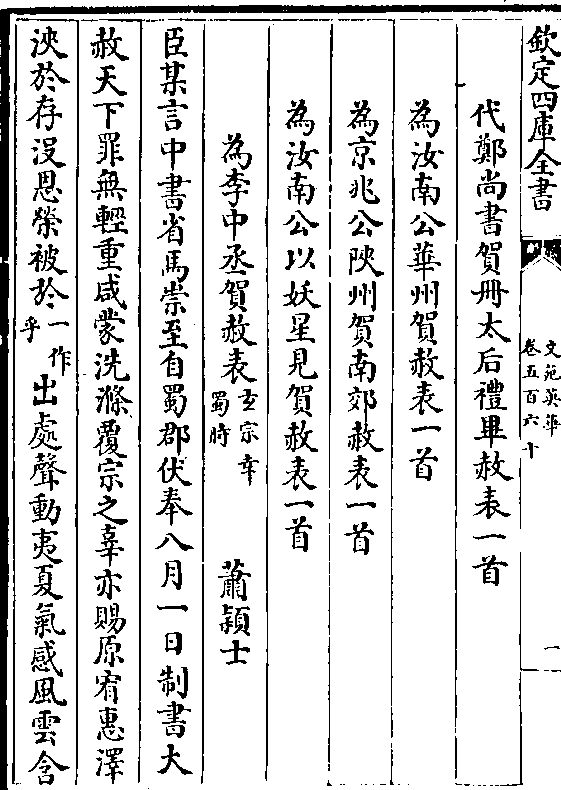 欽定四庫全書
文苑英華
卷五百六十
一
代鄭尚書賀冊太后禮畢赦表一首
為汝南公華州賀赦表一首
為京兆公陜州賀南郊赦表一首
為汝南公以妖星見賀赦表一首
為李中丞賀赦表𤣥宗幸蜀時 蕭頴士
臣某言中書省馬崇至自蜀郡伏奉八月一日制書大
赦天下罪無輕重咸蒙洗滌覆宗之辜亦賜原宥惠澤
浹於存沒恩榮被於一作乎出處聲動夷夏氣感風雲含